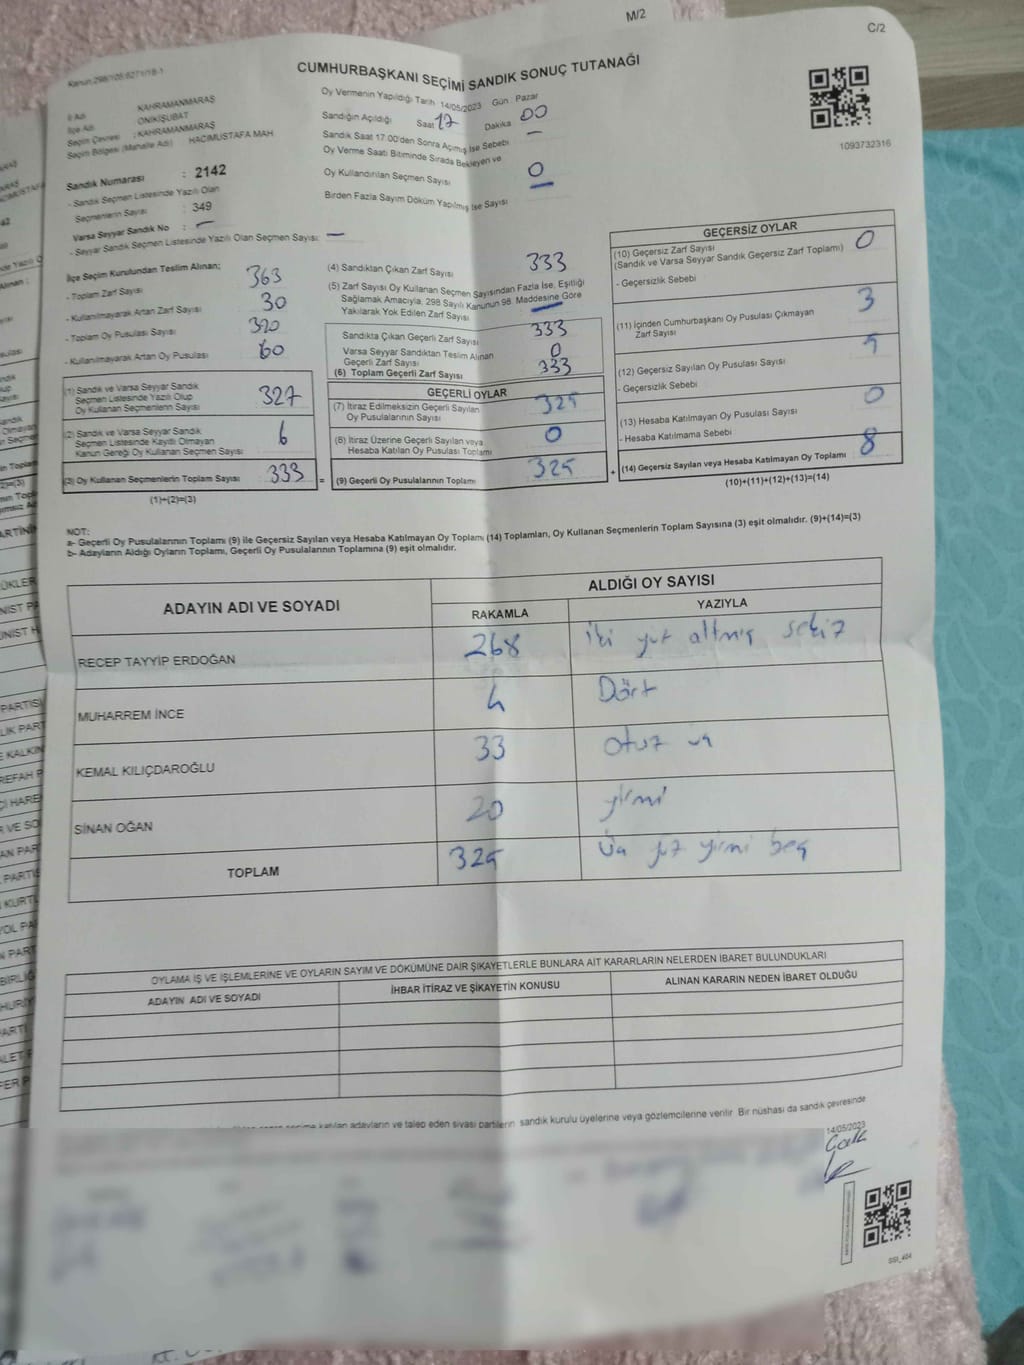 M/2
C/2
Kanun:298/105;6271/18-1
CUMHURBAŞKANI SEÇİMİ SANDIK SONUÇ TUTANAĞI
1093732316
İl Adı KAHRAMANMARAŞ
İlçe Adı ONİKİŞUBAT
Seçim Çevresi : KAHRAMANMARAŞ
Seçim Bölgesi (Mahalle Adı) HACIMUSTAFA MAH
Sandık Numarası : 2142
- Sandık Seçmen Listesinde Yazılı Olan
Seçmenlerin Sayısı : 349
Varsa Seyyar Sandık No : -
- Seyyar Sandık Seçmen Listesinde Yazılı Olan Seçmen Sayısı: -
Oy Vermenin Yapıldığı Tarih 14/05/2023 Gün : Pazar
Sandığın Açıldığı Saat 17 Dakika 00
Sandık Saat 17.00'den Sonra Açımış İse Sebebi -
Oy Verme Saati Bitiminde Sırada Bekleyen ve
Oy Kullandırılan Seçmen Sayısı 0
Birden Fazla Sayım Döküm Yapılmış İse Sayısı -
İlçe Seçim Kurulundan Teslim Alınan;
- Toplam Zarf Sayısı 363
- Kullanılmayarak Artan Zarf Sayısı 30
- Toplam Oy Pusulası Sayısı
- Kullanılmayarak Artan Oy Pusulası 60
(1) Sandık ve Varsa Seyyar Sandık
Seçmen Listesinde Yazılı Olup
Oy Kullanan Seçmenlerin Sayısı 327
(2) Sandık ve Varsa Seyyar Sandık
Seçmen Listesinde Kayıtlı Olmayan
Kanun Gereği Oy Kullanan Seçmen Sayısı 6
(3) Oy Kullanan Seçmenlerin Toplam Sayısı 333 =
(1)+(2)=(3)
(4) Sandıktan Çıkan Zarf Sayısı 333
(5) Zarf Sayısı Oy Kullanan Seçmen Sayısından Fazla İse, Eşitliği
Sağlamak Amacıyla, 298 Sayılı Kanunun 98. Maddesine Göre
Yakılarak Yok Edilen Zarf Sayısı -
Sandıkta Çıkan Geçerli Zarf Sayısı 333
Varsa Seyyar Sandıktan Teslim Alınan
Geçerli Zarf Sayısı 0
(6) Toplam Geçerli Zarf Sayısı 333
GEÇERLİ OYLAR
(7) İtiraz Edilmeksizin Geçerli Sayılan
Oy Pusulalarının Sayısı 325
(8) İtiraz Üzerine Geçerli Sayılan veya
Hesaba Katılan Oy Pusulası Toplamı 0
(9) Geçerli Oy Pusulalarının Toplamı 325 +
GEÇERSİZ OYLAR
(10) Geçersiz Zarf Sayısı 0
(Sandık ve Varsa Seyyar Sandık Geçersiz Zarf Toplamı)
- Geçersizlik Sebebi
(11) İçinden Cumhurbaşkanı Oy Pusulası Çıkmayan
Zarf Sayısı 3
(12) Geçersiz Sayılan Oy Pusulası Sayısı 5
- Geçersizlik Sebebi
(13) Hesaba Katılmayan Oy Pusulası Sayısı 0
- Hesaba Katılmama Sebebi
(14) Geçersiz Sayılan veya Hesaba Katılmayan Oy Toplamı 8
(10)+(11)+(12)+(13)=(14)
NOT:
a- Geçerli Oy Pusulalarının Toplamı (9) ile Geçersiz Sayılan veya Hesaba Katılmayan Oy Toplamı (14) Toplamları, Oy Kullanan Seçmenlerin Toplam Sayısına (3) eşit olmalıdır. (9)+(14)=(3)
b- Adayların Aldığı Oyların Toplamı, Geçerli Oy Pusulalarının Toplamına (9) eşit olmalıdır.
ADAYIN ADI VE SOYADI ALDIĞI OY SAYISI
RAKAMLA YAZIYLA
RECEP TAYYİP ERDOĞAN 268 iki yüz altmış sekiz
MUHARREM İNCE 4 Dört
KEMAL KILIÇDAROĞLU 33 otuz üç
SİNAN OĞAN 20 yirmi
TOPLAM 325 Üç yüz yirmi beş
OYLAMA İŞ VE İŞLEMLERİNE VE OYLARIN SAYIM VE DÖKÜMÜNE DAİR ŞİKAYETLERLE BUNLARA AİT KARARLARIN NELERDEN İBARET BULUNDUKLARI
ADAYIN ADI VE SOYADI İHBAR İTİRAZ VE ŞİKAYETİN KONUSU ALINAN KARARIN NEDEN İBARET OLDUĞU
katılan adayların ve talep eden siyasi partilerin sandık kurulu üyelerine veya gözlemcilerine verilir. Bir nüshası da sandık çevresinde
14/05/2023
SSI_404